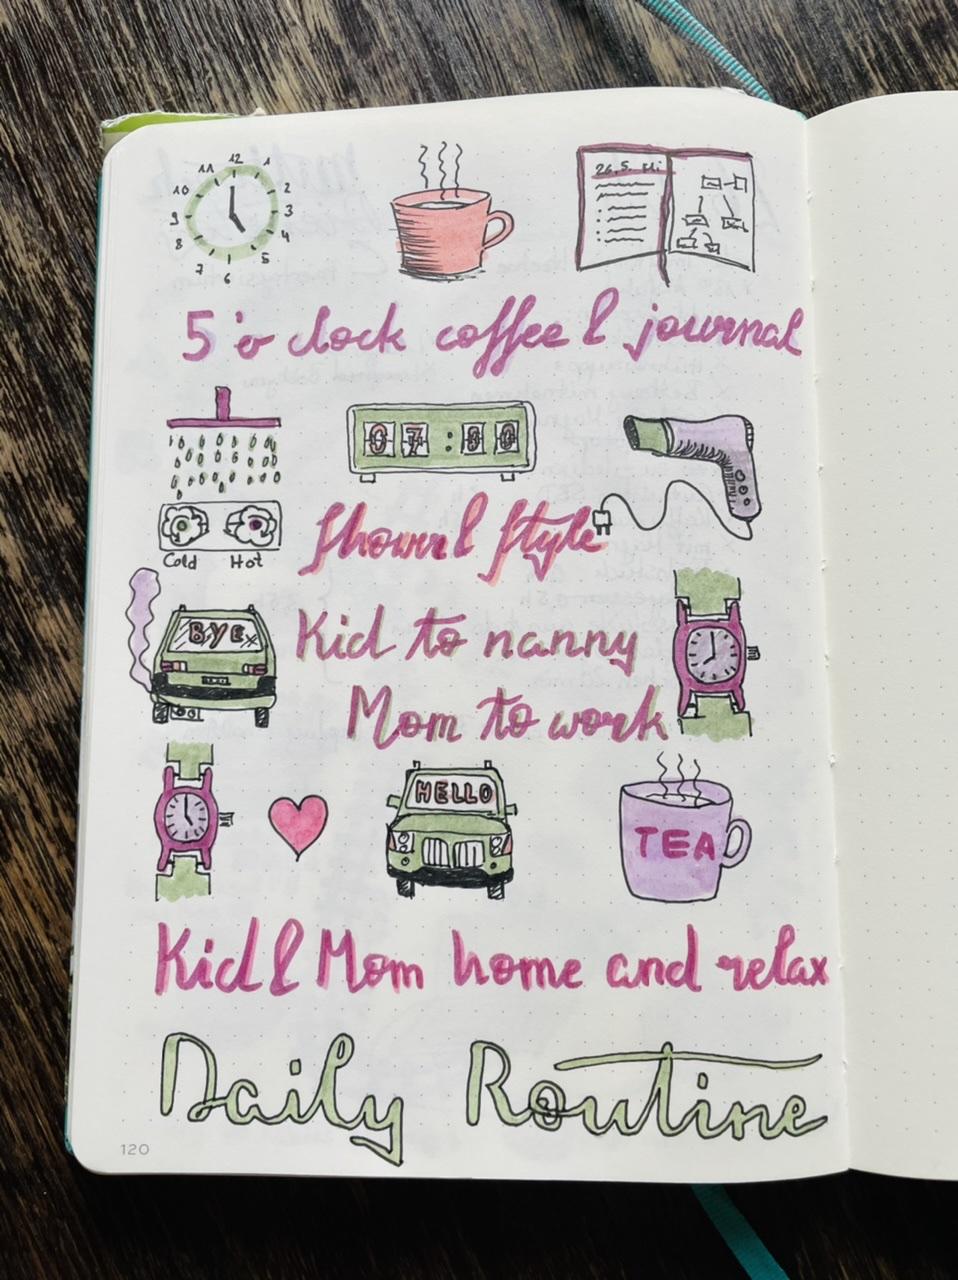 12
11 1
10 2
9 3
8 4
7 5
6
26.5. Mi
5'o clock coffee & journal
07:00
Shower & Style
Cold Hot
BYE
Kid to nanny
Mom to work
HELLO
TEA
Kid & Mom home and relax
Daily Routine
120